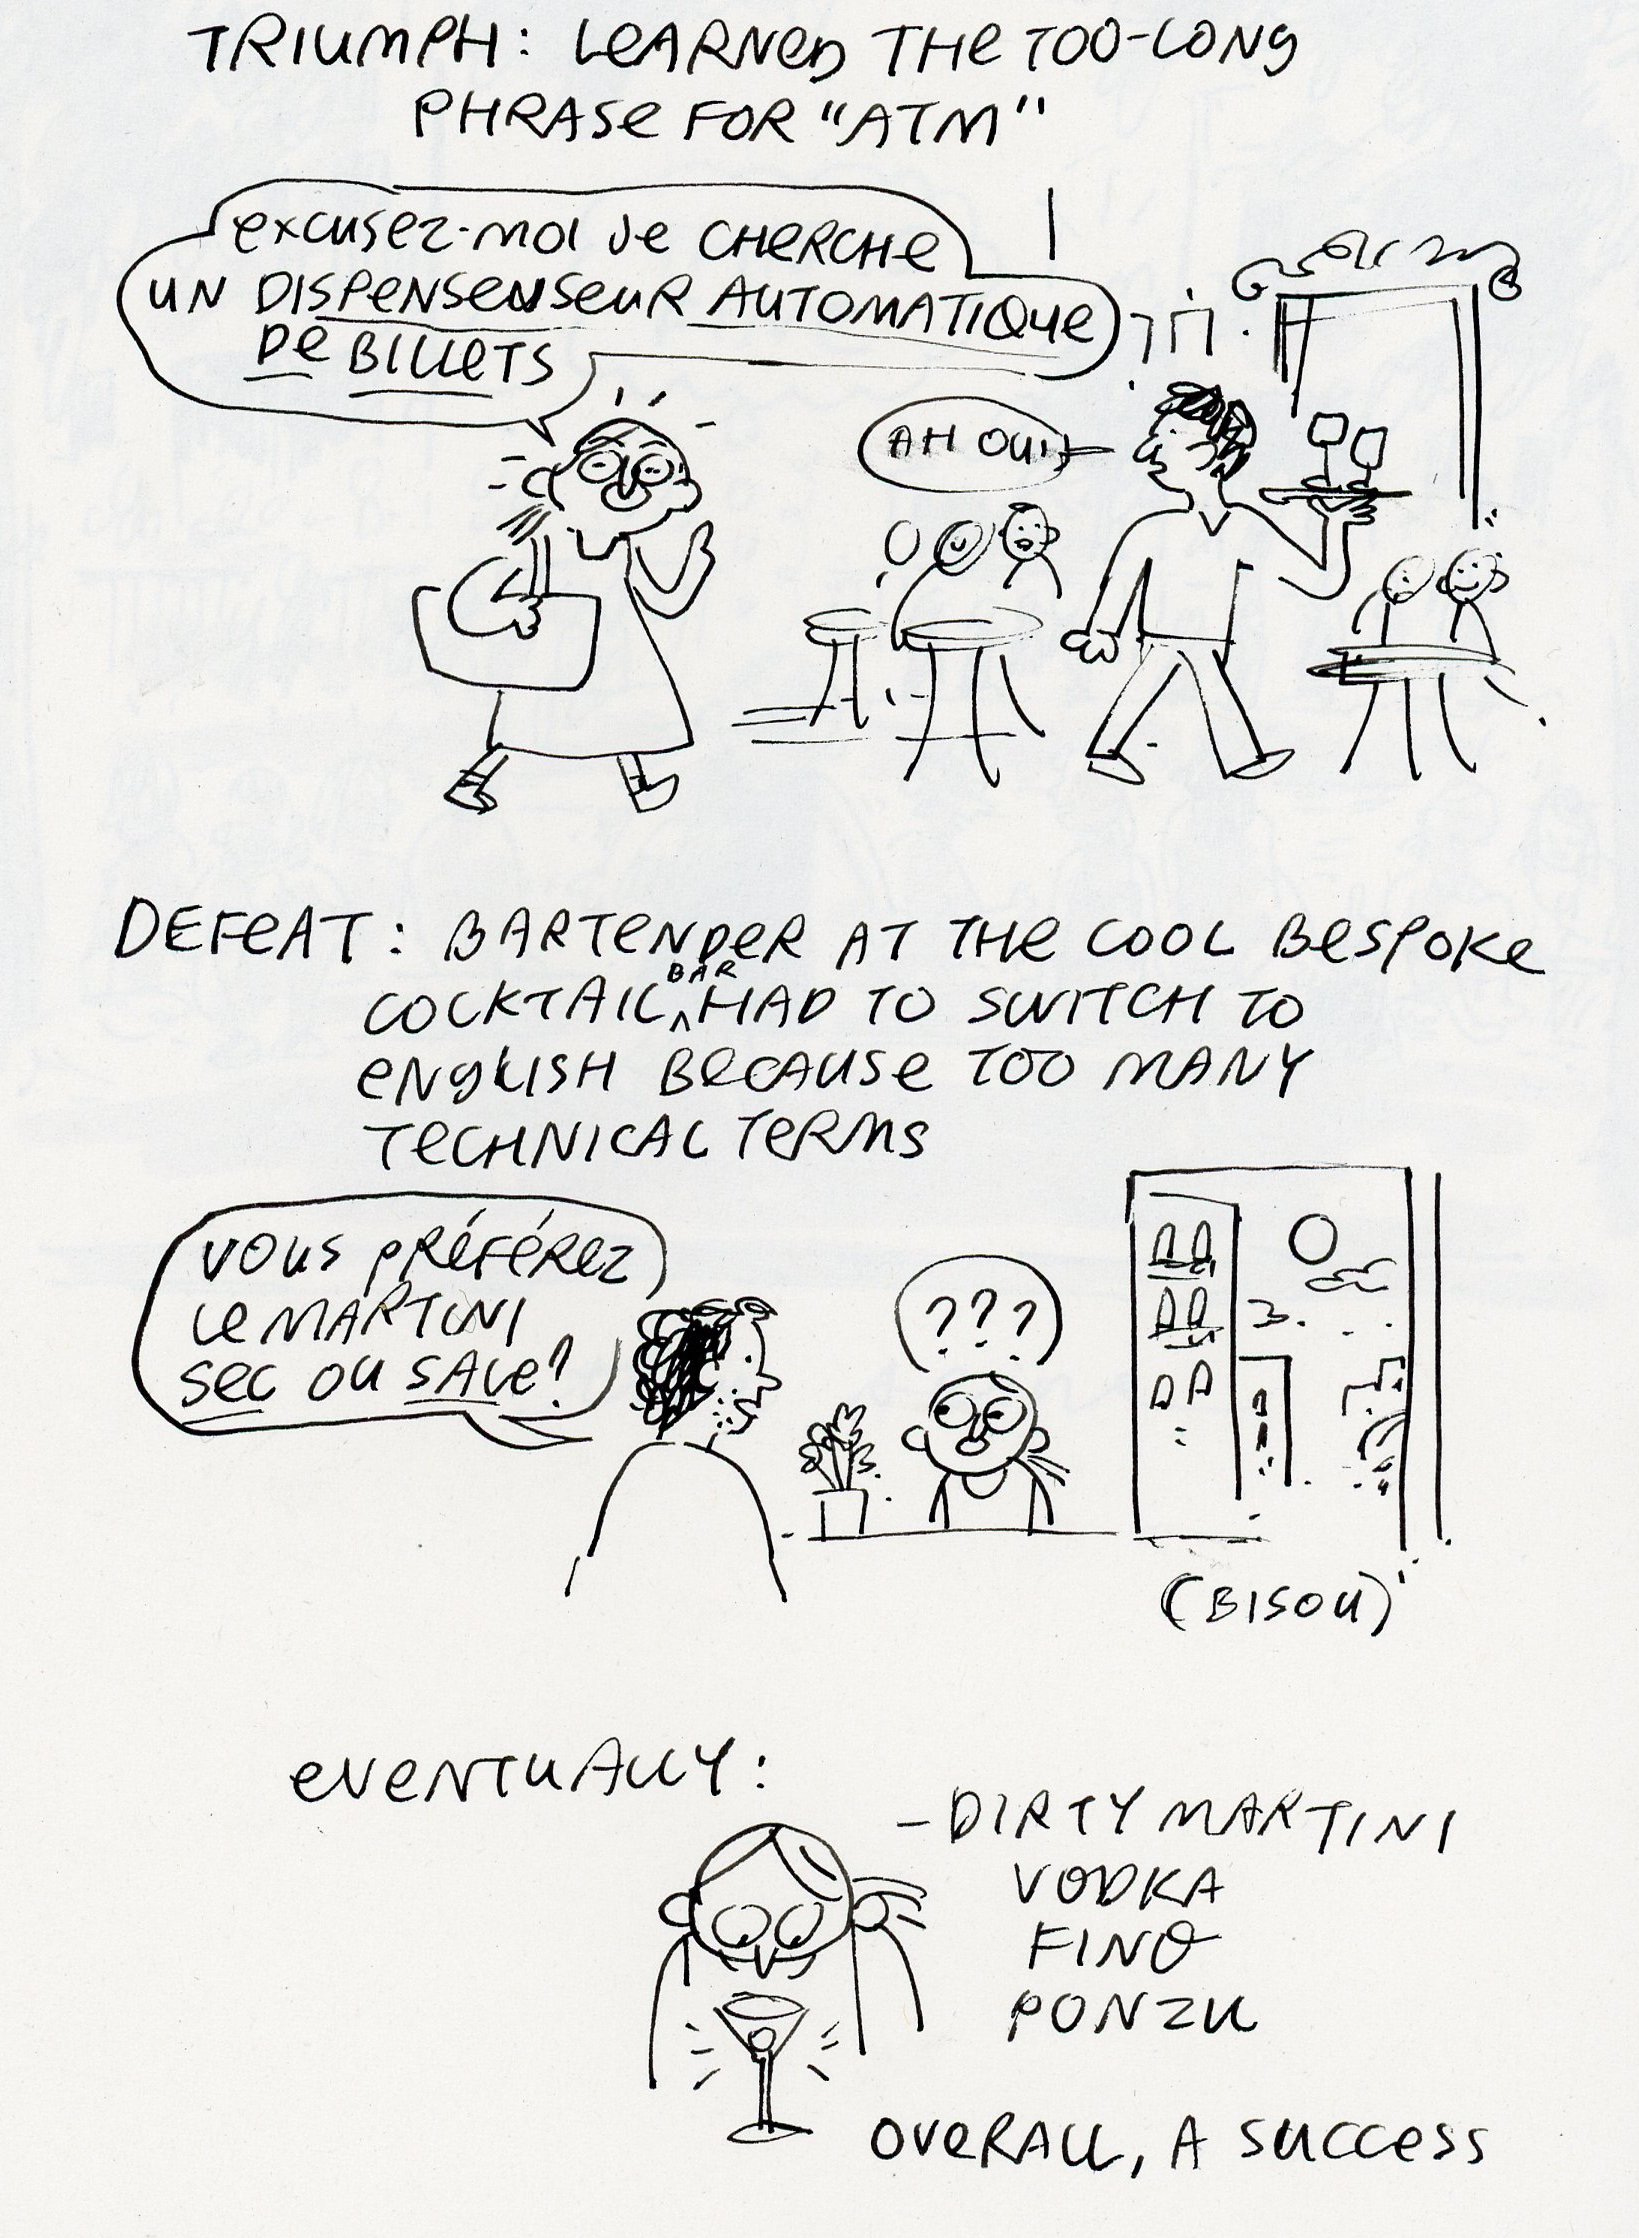 TRIUMPH: LEARNED THE TOO-LONG
PHRASE FOR "ATM"
EXCUSEZ-MOI JE CHERCHE
UN DISPENSENSEUR AUTOMATIQUE
DE BILLETS
AH OUI
DEFEAT: BARTENDER AT THE COOL BESPOKE
COCKTAIL BAR HAD TO SWITCH TO
ENGLISH BECAUSE TOO MANY
TECHNICAL TERMS
VOUS PRÉFÉREZ
LE MARTINI
SEC OU SALE?
???
(BISOU)
EVENTUALLY:
-DIRTY MARTINI
VODKA
FINO
PONZU
OVERALL, A SUCCESS